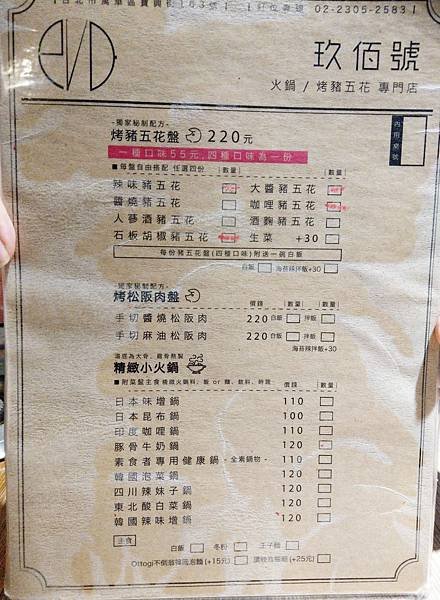 台北市萬華區寶興街163號 訂位專線 02-2305-2583
玖佰號
火鍋 / 烤豬五花 專門店
內用桌號
-獨家秘制配方-
烤豬五花盤 220元
一種口味55元,四種口味為一份
■每盤自由搭配 任選四份 數量 數量
辣味豬五花 大醬豬五花
醬燒豬五花 咖哩豬五花
人蔘酒豬五花 酒麴豬五花
石板胡椒豬五花 生菜 +30
每份豬五花盤(四種口味)附送一碗白飯
白飯 海苔辣拌飯+30
-獨家秘制配方-
烤松阪肉盤 價錢 數量 數量
手切醬燒松阪肉 220 白飯 拌飯
手切麻油松阪肉 220 白飯 拌飯
海苔辣拌飯+30
湯底為大骨、雞骨熬製
精緻小火鍋
■附菜盤主食 精緻火鍋料、飯 or 麵、飲料、時蔬 價錢 數量
日本味增鍋 110
日本昆布鍋 100
印度咖哩鍋 110
豚骨牛奶鍋 120
素食者專用健康鍋 -全素鍋物- 110
韓國泡菜鍋 120
四川辣妹子鍋 120
東北酸白菜鍋 120
韓國辣味增鍋 120
主食
白飯 冬粉 王子麵
Ottogi不倒翁韓國泡麵(+15元) 讚岐烏龍麵(+25元)